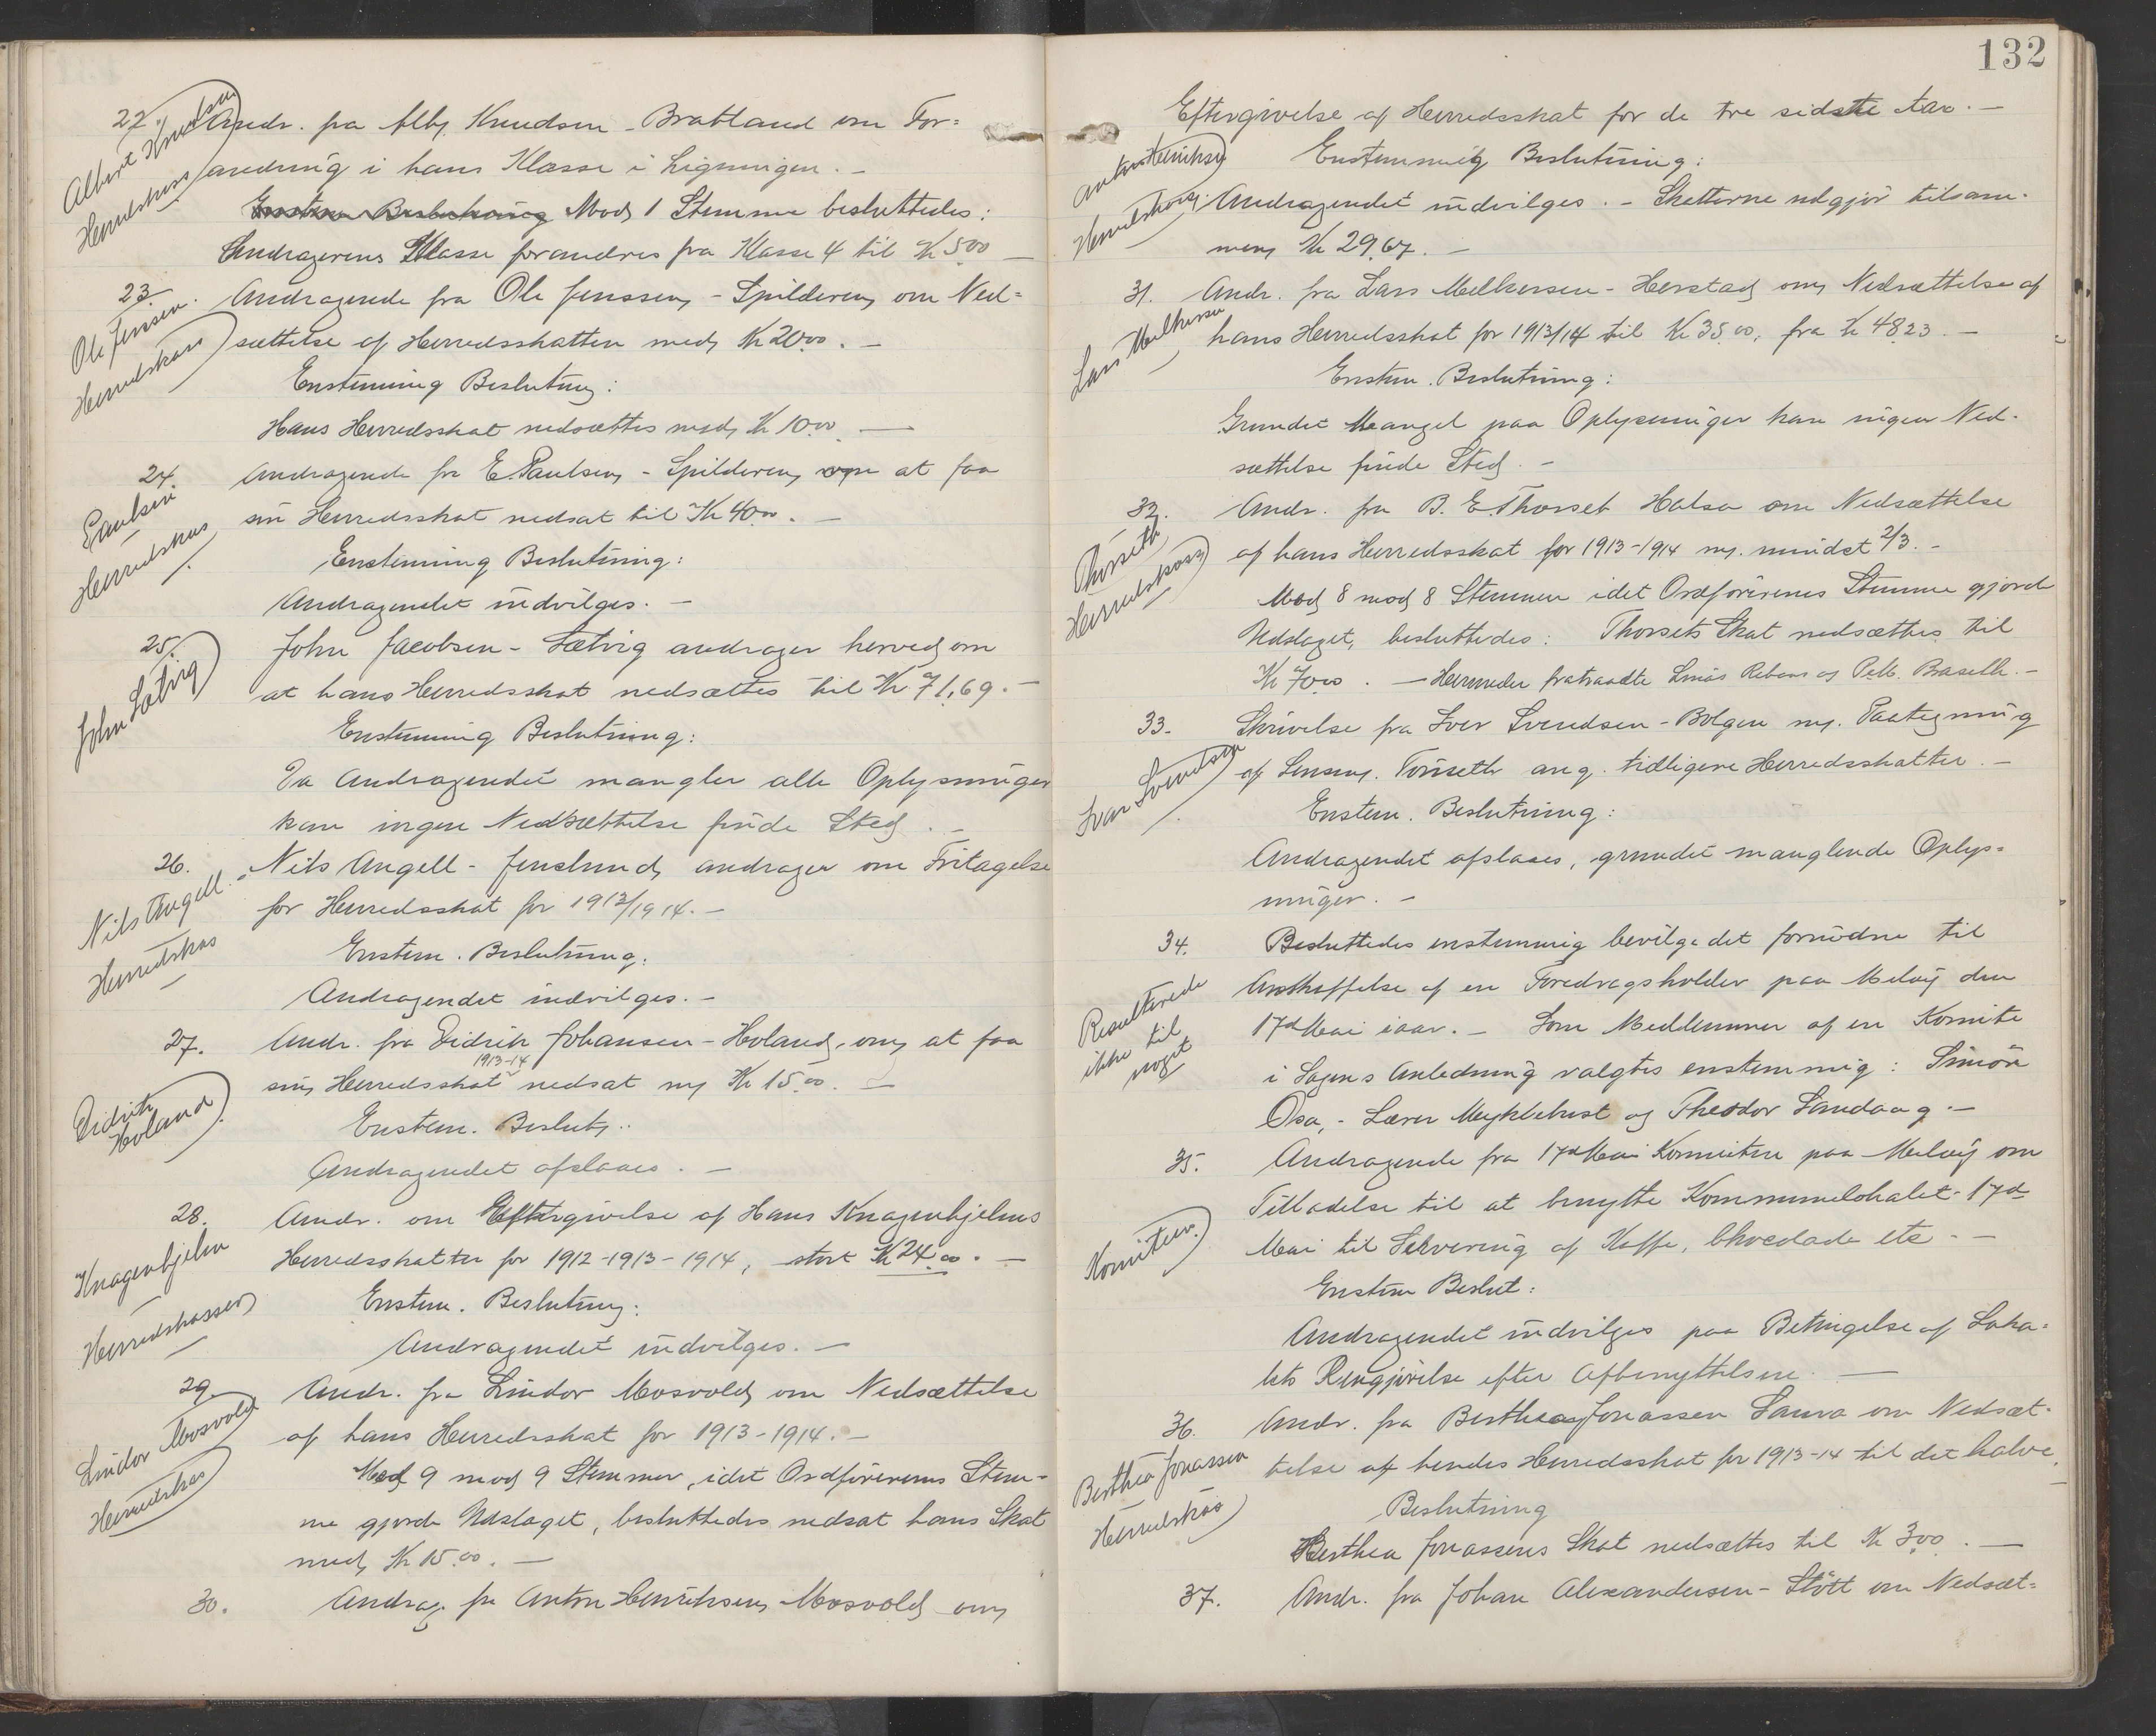 22. Andr. fra Alb. Knudsen - Bratland om For=
Albert Knudsen
Herredskass
andring i hans Klasse i Ligningen. -
Enstem Beslutning Mod 1 Stemme besluttedes:
Andragerens Klasse forandres fra Klasse 4 til K 5.00 -
23. Andragende fra Ole Jenssen - Spilderen om Ned=
Ole Jenssen
Herredskass
sættelse af Herredsskatten med Kr 20.00. -
Enstemmig Beslutng:
Hans Herredsskat nedsættes med Kr 10.00. -
24. Andragende fr E. Paulsen - Spilderen om at faa
Paulsen
Herredskas
sin Herredsskat nedsat til Kr 40.00. -
Enstemmig Beslutning:
Andragendet indvilges. -
25. John Jacobsen - Sætvig andrager herved om
John Sætvig
at hans Herredsskat nedsættes til Kr 71,69. -
Enstemmig Beslutning:
Da Andragendet mangler alle Oplysninger
kan ingen Nedsættelse finde Sted. -
26. Nils Angell - Jenslund andrager om Fritagelse
Nils Angell.
Herredskas
for Herredsskat for 1913/1914. -
Enstem. Beslutning:
Andragendet indvilges. -
27. Andr. fra Didrik Johansen - Holand, om at faa
Didrik
Holand
1913-14
sin Herredsskat nedsat m Kr 15.00. -
Enstem. Beslutn:
Andragendet afslaaes. -
28. Andr. om Eftergivelse af Hans Knagenhjelms
Knagenhjelm
Herredskassen
Herredsskatter for 1912-1913-1914, stort K 24.00. -
Enstem. Beslutng:
Andragendet indvilges. -
29. Andr. fra Lindor Mosvold om Nedsættelse
Lindor Mosvold
Herredskas
af hans Herredsskat for 1913-1914. -
Med 9 mod 9 Stemmer, idet Ordførerens Stem-
me gjorde Udslaget, besluttedes nedsat hans Skat
med Kr 15.00. -
30. Andrag. fra Anton Henriksen Mosvold om
132
Eftergivelse af Herredsskat for de tre sidste Aar. -
Anton Henriksen
Herredskas
Enstemmig Beslutning:
Andragendet indvilges. - Skatterne udgjør tilsam-
men Kr 29,67. -
31. Andr. fra Lars Melkersen - Herstad om Nedsættelse af
Lars Melkersen
hans Herredsskat for 1913/14 til Kr 35.00, fra Kr 48.23. -
Enstem. Beslutning:
Grundet Mangel paa Oplysninger kan ingen Ned-
sættelse finde Sted. -
32. Andr. fra B. E. Thorset Halsa om Nedsættelse
Thorseth
Herredskass
af hans Herredsskat for 1913-1914 m. mindst 2/3. -
Med 8 mod 8 Stemmer idet Ordførerens Stemme gjorde
Udslaget, besluttedes: Thorsets Skat nedsættes til
Kr 70.00. - Herunder fratraadte og Pett. -
33. Skrivelse fra Iver Svendsen - Bolgen m. Paategning
Ivar Svendsen
af Lensm. Tønseth ang. tidligere Herredsskatter. -
Enstem. Beslutning:
Andragendet afslaaes, grundet manglende Oplys=
ninger. -
34. Besluttedes enstemmig bevilge det fornødne til
Resulterede
ikke til
noget
Anskaffelse af en Foredragsholder paa Meløy den
17d Mai iaar. - Som Medlemmer af en Komite
i Sagens Anledning valgtes enstemmig: Simon
Osa, - Lærer Myklebust og Theodor Sandaag. -
35. Andragende fra 17d Mai Komiteen paa Meløy om
Komiteen.
Tilladelse til at benytte Kommunelokalet 17d
Mai til Servering af Kaffe, Chocolade etc. -
Enstem Beslut:
Andragendet indvilges paa Betingelse af Loka=
lets Rengjørelse efter Afbenyttelsen. -
36. Andr. fra Berthea Jonassen Saura om Nedsæt-
Berthea Jonassen
Herredskas
telse af hendes Herredsskat for 1913-14 til det halve.
Beslutning
Berthea Jonassens Skat nedsættes til K 3.00. -
37. Andr. fra Johan Alexandersen - Støtt om Nedsæt=